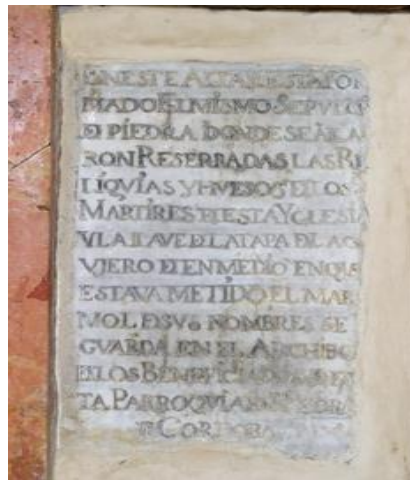 EN ESTE ALTAR ESTA FOR
MADO EL MISMO SEPVLCR
DE PIEDRA DONDE SE ALLA
RON RESERBADAS LAS RE
LIQVIAS Y HVESOS DE LOS
MARTIRES DE ESTA YGLESIA
Y LA LLAVE DE LA TAPA DEL AG
VJERO DE EN MEDIO EN QVE
ESTAVA METIDO EL MAR
MOL DE SVS NOMBRES SE
GVARDA EN EL ARCHIBO
DE LOS BENEFICIADOS
TA PARROQVIA
DE CORDOBA